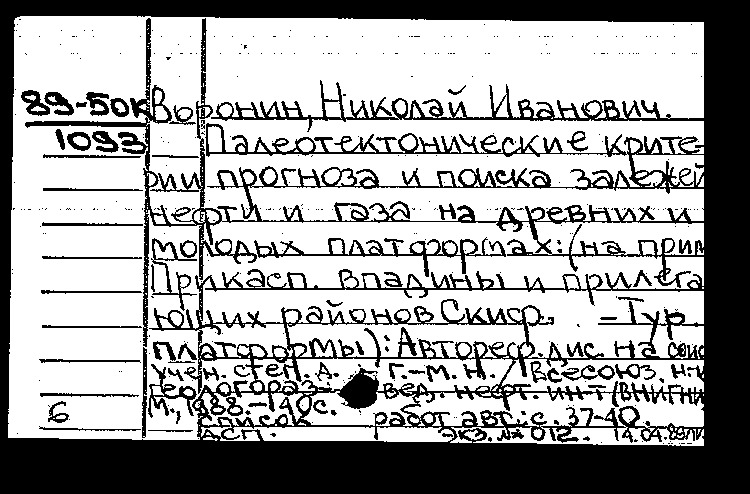 89-50к Воронин, Николай Иванович.
1093 Палеотектонические крите-
рии прогноза и поиска залежей
нефти и газа на древних и
молодых платформах: (на прим
Прикасп. впадины и прилега
ющих районов Скиф. -Тур.
платформы): Автореф. дис. на соис
учен. степ. д. г.-м. н. / Всесоюз. н-и
геологораз- вед. нефт. ин-т (ВНИГНИ
М., 1988. - 140с.
6 список работ авт.: с. 37-40.
ДСП. Экз. № 012. 14.04.89